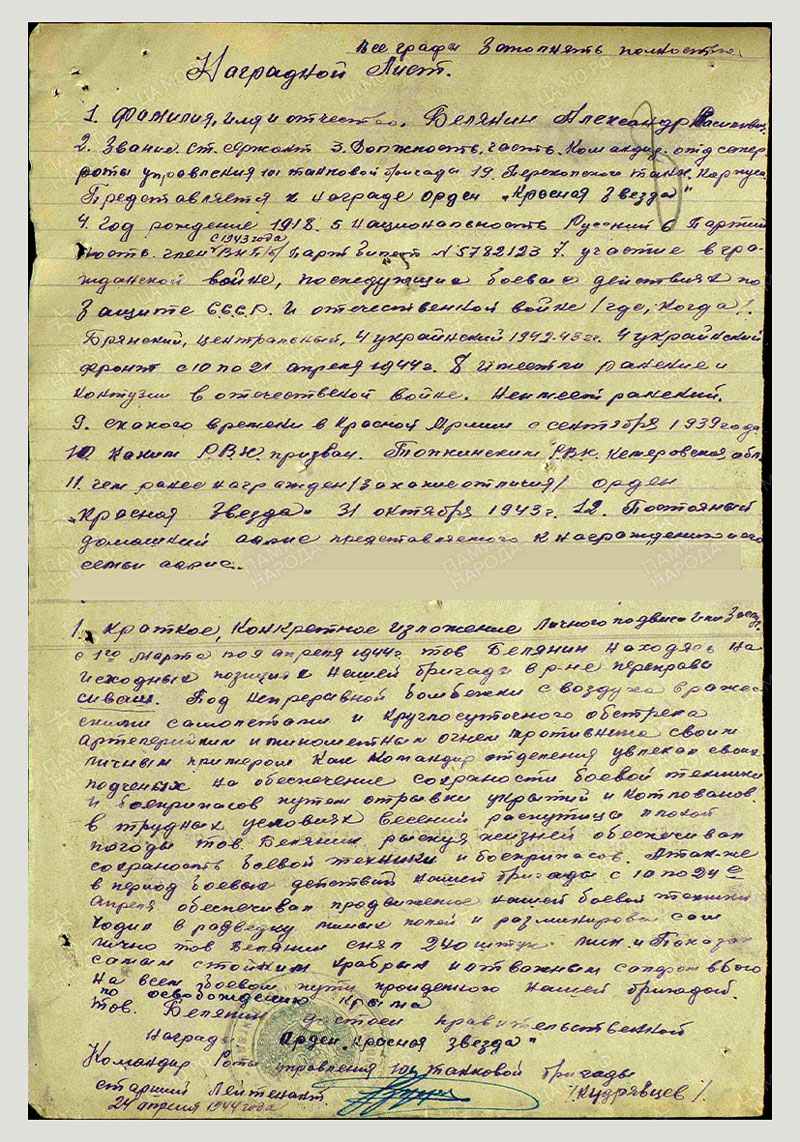 Все графы Заполнять полностью.
Наградной Лист.
1. Фамилия, имя и отчество. Белянин Александр
2. Звание ст. сержант 3. Должность, часть. Командир отд сапер
роты управления 101 танковой бригады 19. Перекопского танк. Корпуса
Представляется к награде орден „Красная Звезда"
4. год рождение 1918. 5 Национальность Русский 6 Партий
ность. член с 1943 года ВКП(б) Партбилет № 5782123 7. участие в гра-
жданской войне, последующие боевые действиях по
Защите С.С.С.Р. и отечественной войне /где, когда/.
Брянский, центральный, 4 украинский 1942-43 гг. 4 украинский
фронт с 10 по 21 апреля 1944 г. 8 Имеет ли ранение и
контузии в отечественой войне. Неимеет ранений.
9. с какого времени в Красной Армии с сентября 1939 года
10 Каким Р.В.К. призван. Топкинским Р.В.К. Кемеровской обл.
11. чем ранее награжден /за какие отличия/ орден
„Красная Звезда" 31 октября 1943 г. 12. Постояный
домашний адрис представляемого к награждению и его
семьи адрис.
1. Краткое, конкретное изложение личного подвига или
с 1го Марта по 9 апреля 1944 г. тов Белянин находясь на
исходных позициях нашей бригады в р-не переправы
сиваш. Под непрерывной бомбежки с воздуха вражес
скими самолетами и круглосуточного обстрела
артелерийким и минометным огнем противника своим
личным примером Как Командир отделения увлекал своих
подченых на обеспечение сохраности боевой техники
и боеприпасов путем отрывки укрытий и котлованов.
в трудных условиях весенний распутицы плохой
погоды тов Белянин рискуя жизней обеспечивал
сохраность боевой техники и боеприпасов. Атакже
в период боевых действий нашей бригады с 10 по 24е
Апреля обеспечивал продвижение нашей боевой техники
ходил в разведку миных полей и разминирова сам
лично тов Белянин снял 240 штук мин и Показал
самым стойким храбрым и отважным сапером в бою
На всем боевом пути пройденого нашей бригадой.
по освобождению Крыма
Тов. Белянин достоен правительственной
Награды Орден „Красная звезда"
Командир Роты управления 101 танковой бригады
старший Лейтенант /Кудрявцев/.
24 апреля 1944 года
ПАМЯТЬ
НАРОДА
ЦАМО.РФ